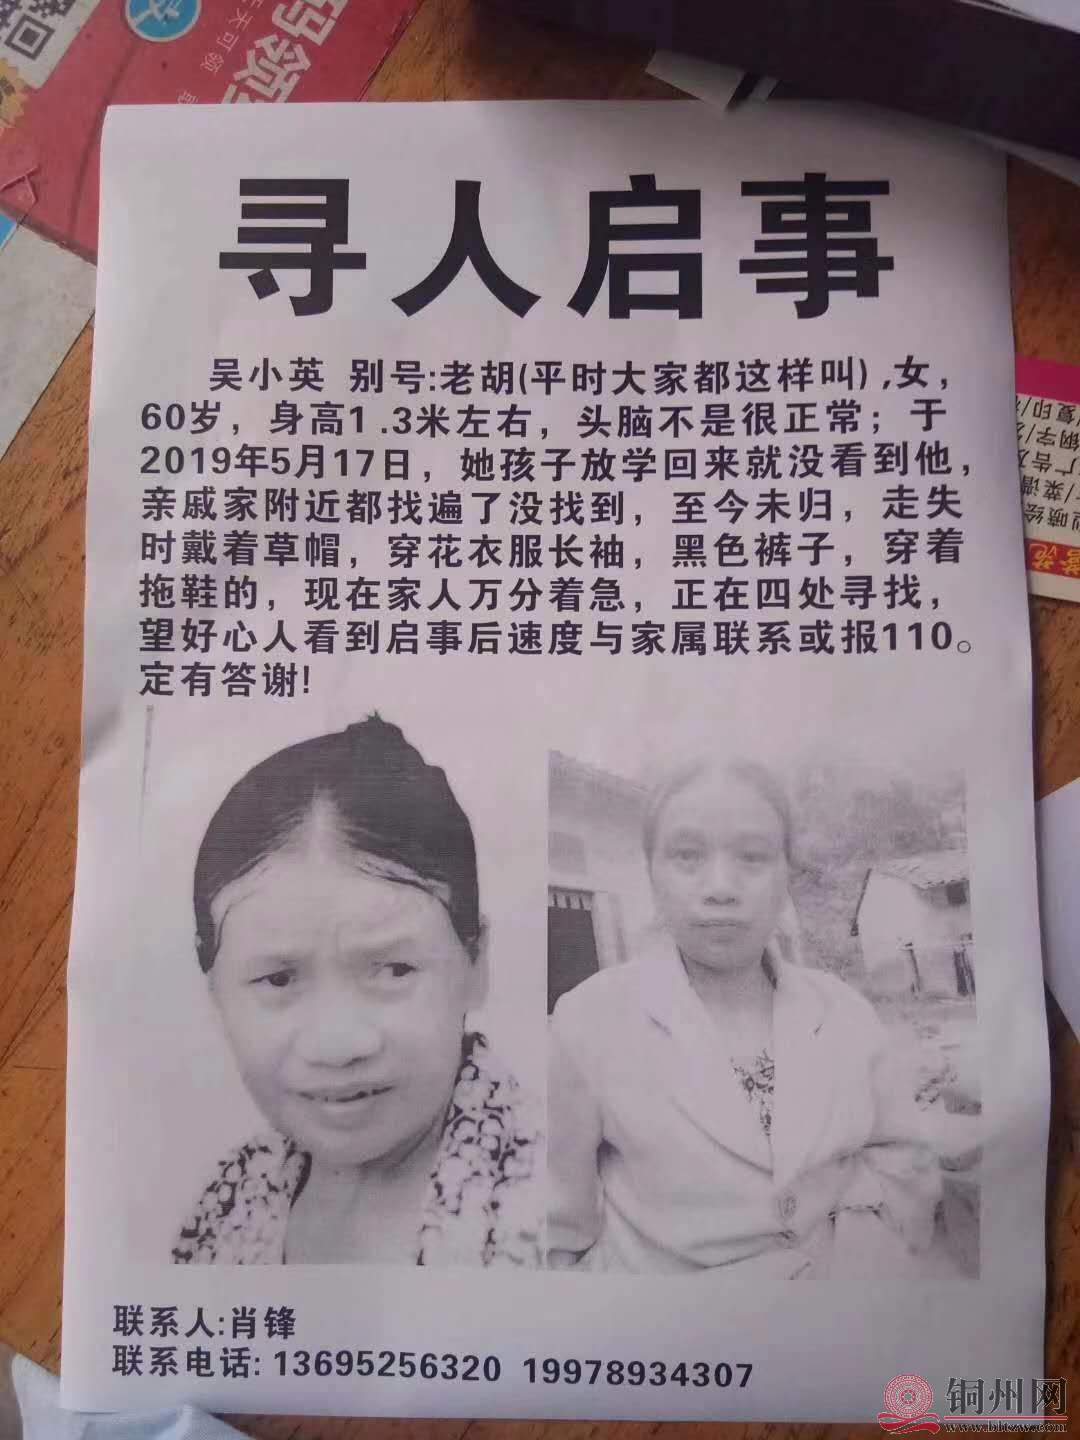 码领
天可领
寻人启事
吴小英 别号:老胡(平时大家都这样叫) ,女，
60岁，身高1.3米左右，头脑不是很正常；于
2019年5月17日，她孩子放学回来就没看到他，
亲戚家附近都找遍了没找到，至今未归，走失
时戴着草帽，穿花衣服长袖，黑色裤子，穿着
拖鞋的，现在家人万分着急，正在四处寻找，
望好心人看到启事后速度与家属联系或报110。
定有答谢!
联系人:肖锋
联系电话: 13695256320 19978934307
铜州网
www.bltzw.com